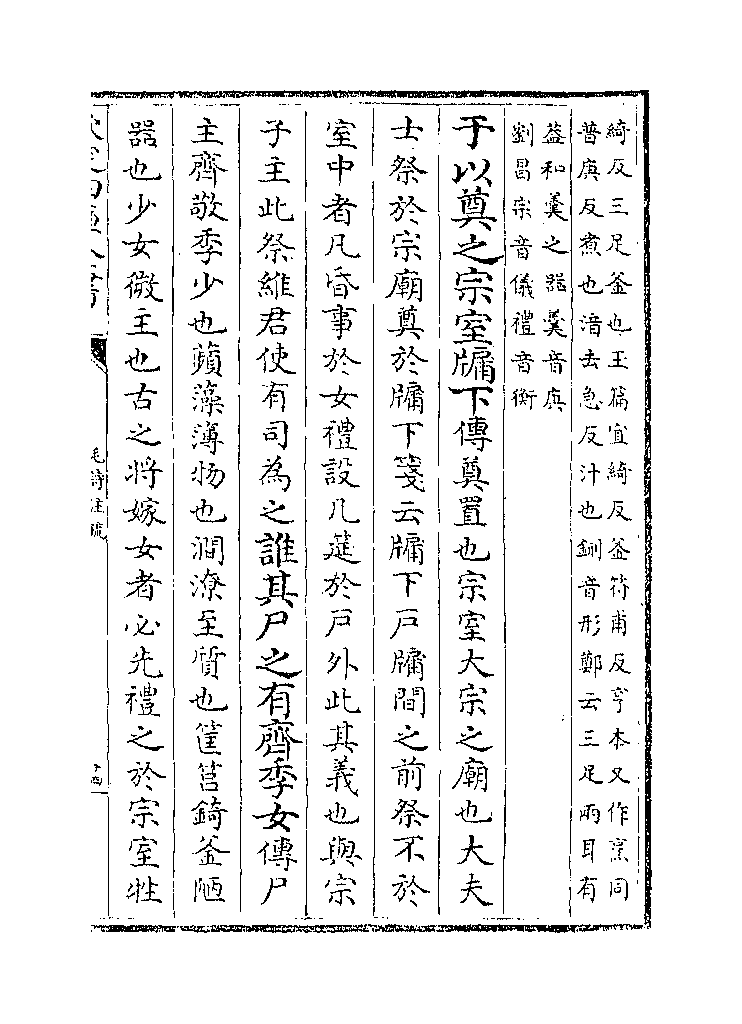 綺反三足釜也玉篇宜綺反釜符甫反亨本又作烹同
普庚反煮也湆去急反汁也鉶音形鄭云三足兩耳有
葢和羹之器羹音庚
劉昌宗音儀禮音衡
于以奠之宗室牖下傳奠置也宗室大宗之廟也大夫
士祭於宗廟奠於牖下箋云牖下戸牖間之前祭不於
室中者凡昏事於女禮設几筵於戸外此其義也與宗
子主此祭維君使有司為之誰其尸之有齊季女傳尸
主齊敬季少也蘋藻薄物也澗潦至質也筐筥錡釜陋
器也少女微主也古之將嫁女者必先禮之於宗室牲
毛詩注疏